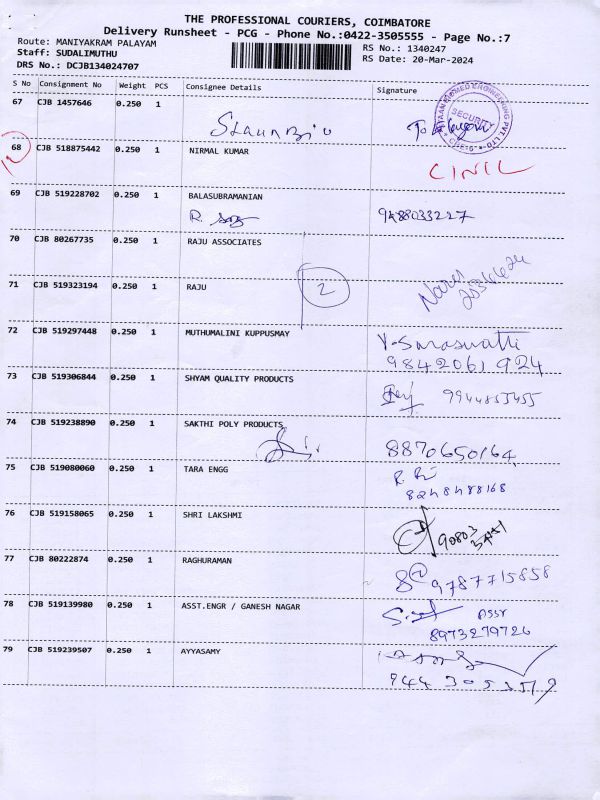 THE PROFESSIONAL COURIERS, COIMBATORE
Delivery Runsheet - PCG - Phone No.:0422-3505555 - Page No.:7
Route: MANIYAKRAM PALAYAM
Staff: SUDALIMUTHU
DRS No.: DCJB134024707
RS No.: 1340247
RS Date: 20-Mar-2024
S No Consignment No Weight PCS Consignee Details Signature
67 CJB 1457646 0.250 1
SECURITY
68 CJB 518875442 0.250 1 NIRMAL KUMAR
69 CJB 519228702 0.250 1 BALASUBRAMANIAN
9488033227
70 CJB 80267735 0.250 1 RAJU ASSOCIATES
71 CJB 519323194 0.250 1 RAJU
2
72 CJB 519297448 0.250 1 MUTHUMALINI KUPPUSMAY
V. Saraswathi
9842061924
73 CJB 519306844 0.250 1 SHYAM QUALITY PRODUCTS
74 CJB 519238890 0.250 1 SAKTHI POLY PRODUCTS
8870650164
75 CJB 519080060 0.250 1 TARA ENGG
8248488168
76 CJB 519158065 0.250 1 SHRI LAKSHMI
77 CJB 80222874 0.250 1 RAGHURAMAN
9787715858
78 CJB 519139980 0.250 1 ASST.ENGR / GANESH NAGAR
8973279726
79 CJB 519239507 0.250 1 AYYASAMY